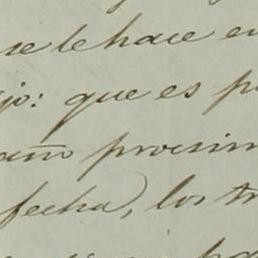 se le hace en
jo: que es p
año procsim
fecha, los tr